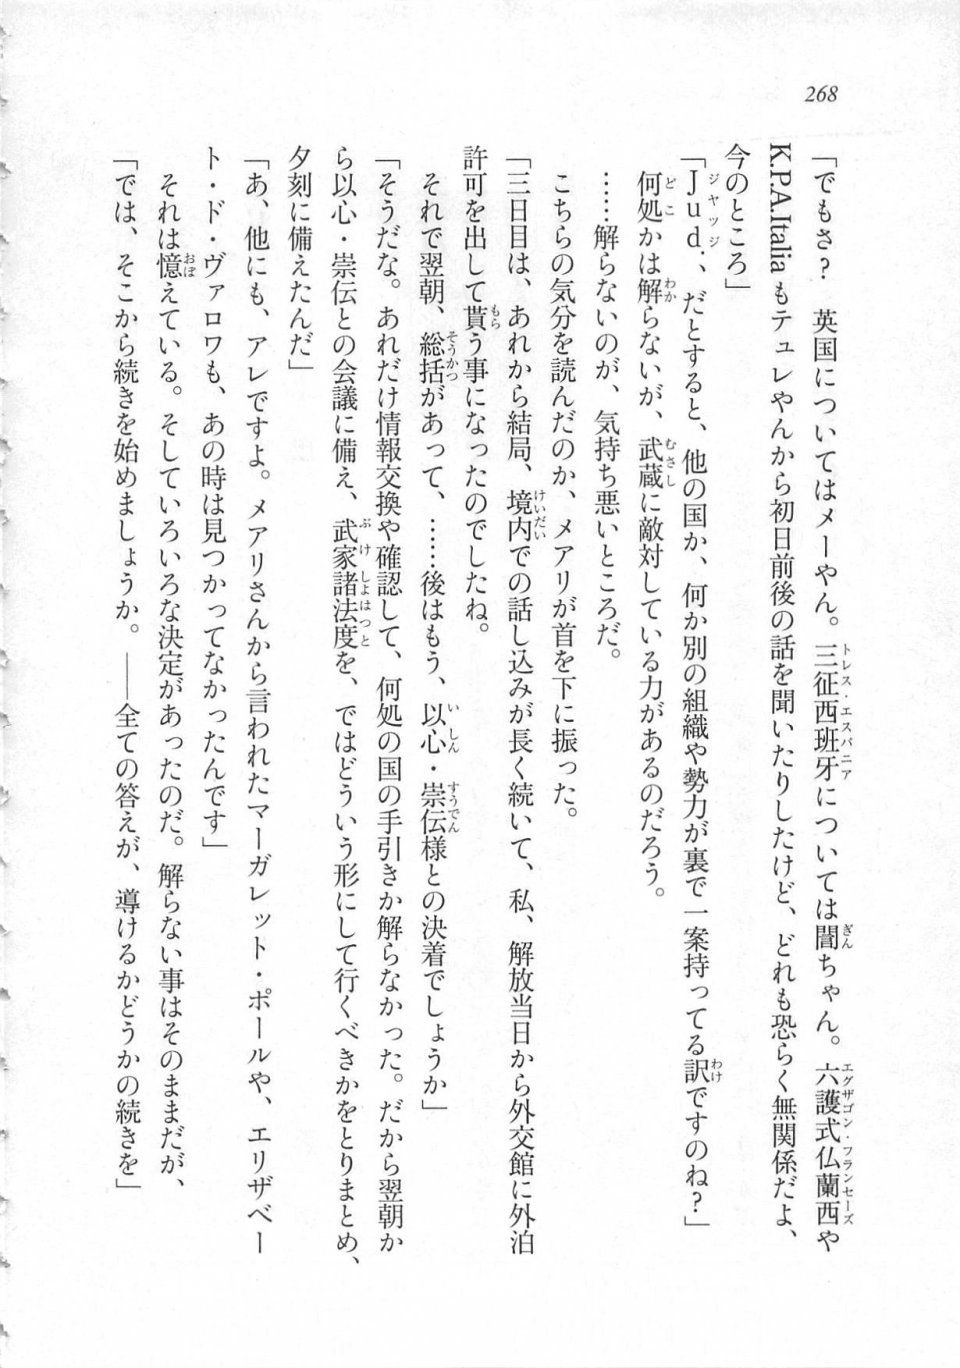 268
「でもさ？　英国についてはメーやん。三征西班牙については誾ちゃん。六護式仏蘭西や
K.P.A.Italiaもテュレやんから初日前後の話を聞いたりしたけど、どれも恐らく無関係だよ、
今のところ」
「Jud.、だとすると、他の国か、何か別の組織や勢力が裏で一案持ってる訳ですのね？」
何処かは解らないが、武蔵に敵対している力があるのだろう。
……解らないのが、気持ち悪いところだ。
こちらの気分を読んだのか、メアリが首を下に振った。
「三日目は、あれから結局、境内での話し込みが長く続いて、私、解放当日から外交館に外泊
許可を出して貰う事になったのでしたね。
それで翌朝、総括があって、……後はもう、以心・崇伝様との決着でしょうか」
「そうだな。あれだけ情報交換や確認して、何処の国の手引きか解らなかった。だから翌朝か
ら以心・崇伝との会議に備え、武家諸法度を、ではどういう形にして行くべきかをとりまとめ、
夕刻に備えたんだ」
「あ、他にも、アレですよ。メアリさんから言われたマーガレット・ポールや、エリザベー
ト・ド・ヴァロワも、あの時は見つかってなかったんです」
それは憶えている。そしていろいろな決定があったのだ。解らない事はそのままだが、
「では、そこから続きを始めましょうか。――全ての答えが、導けるかどうかの続きを」